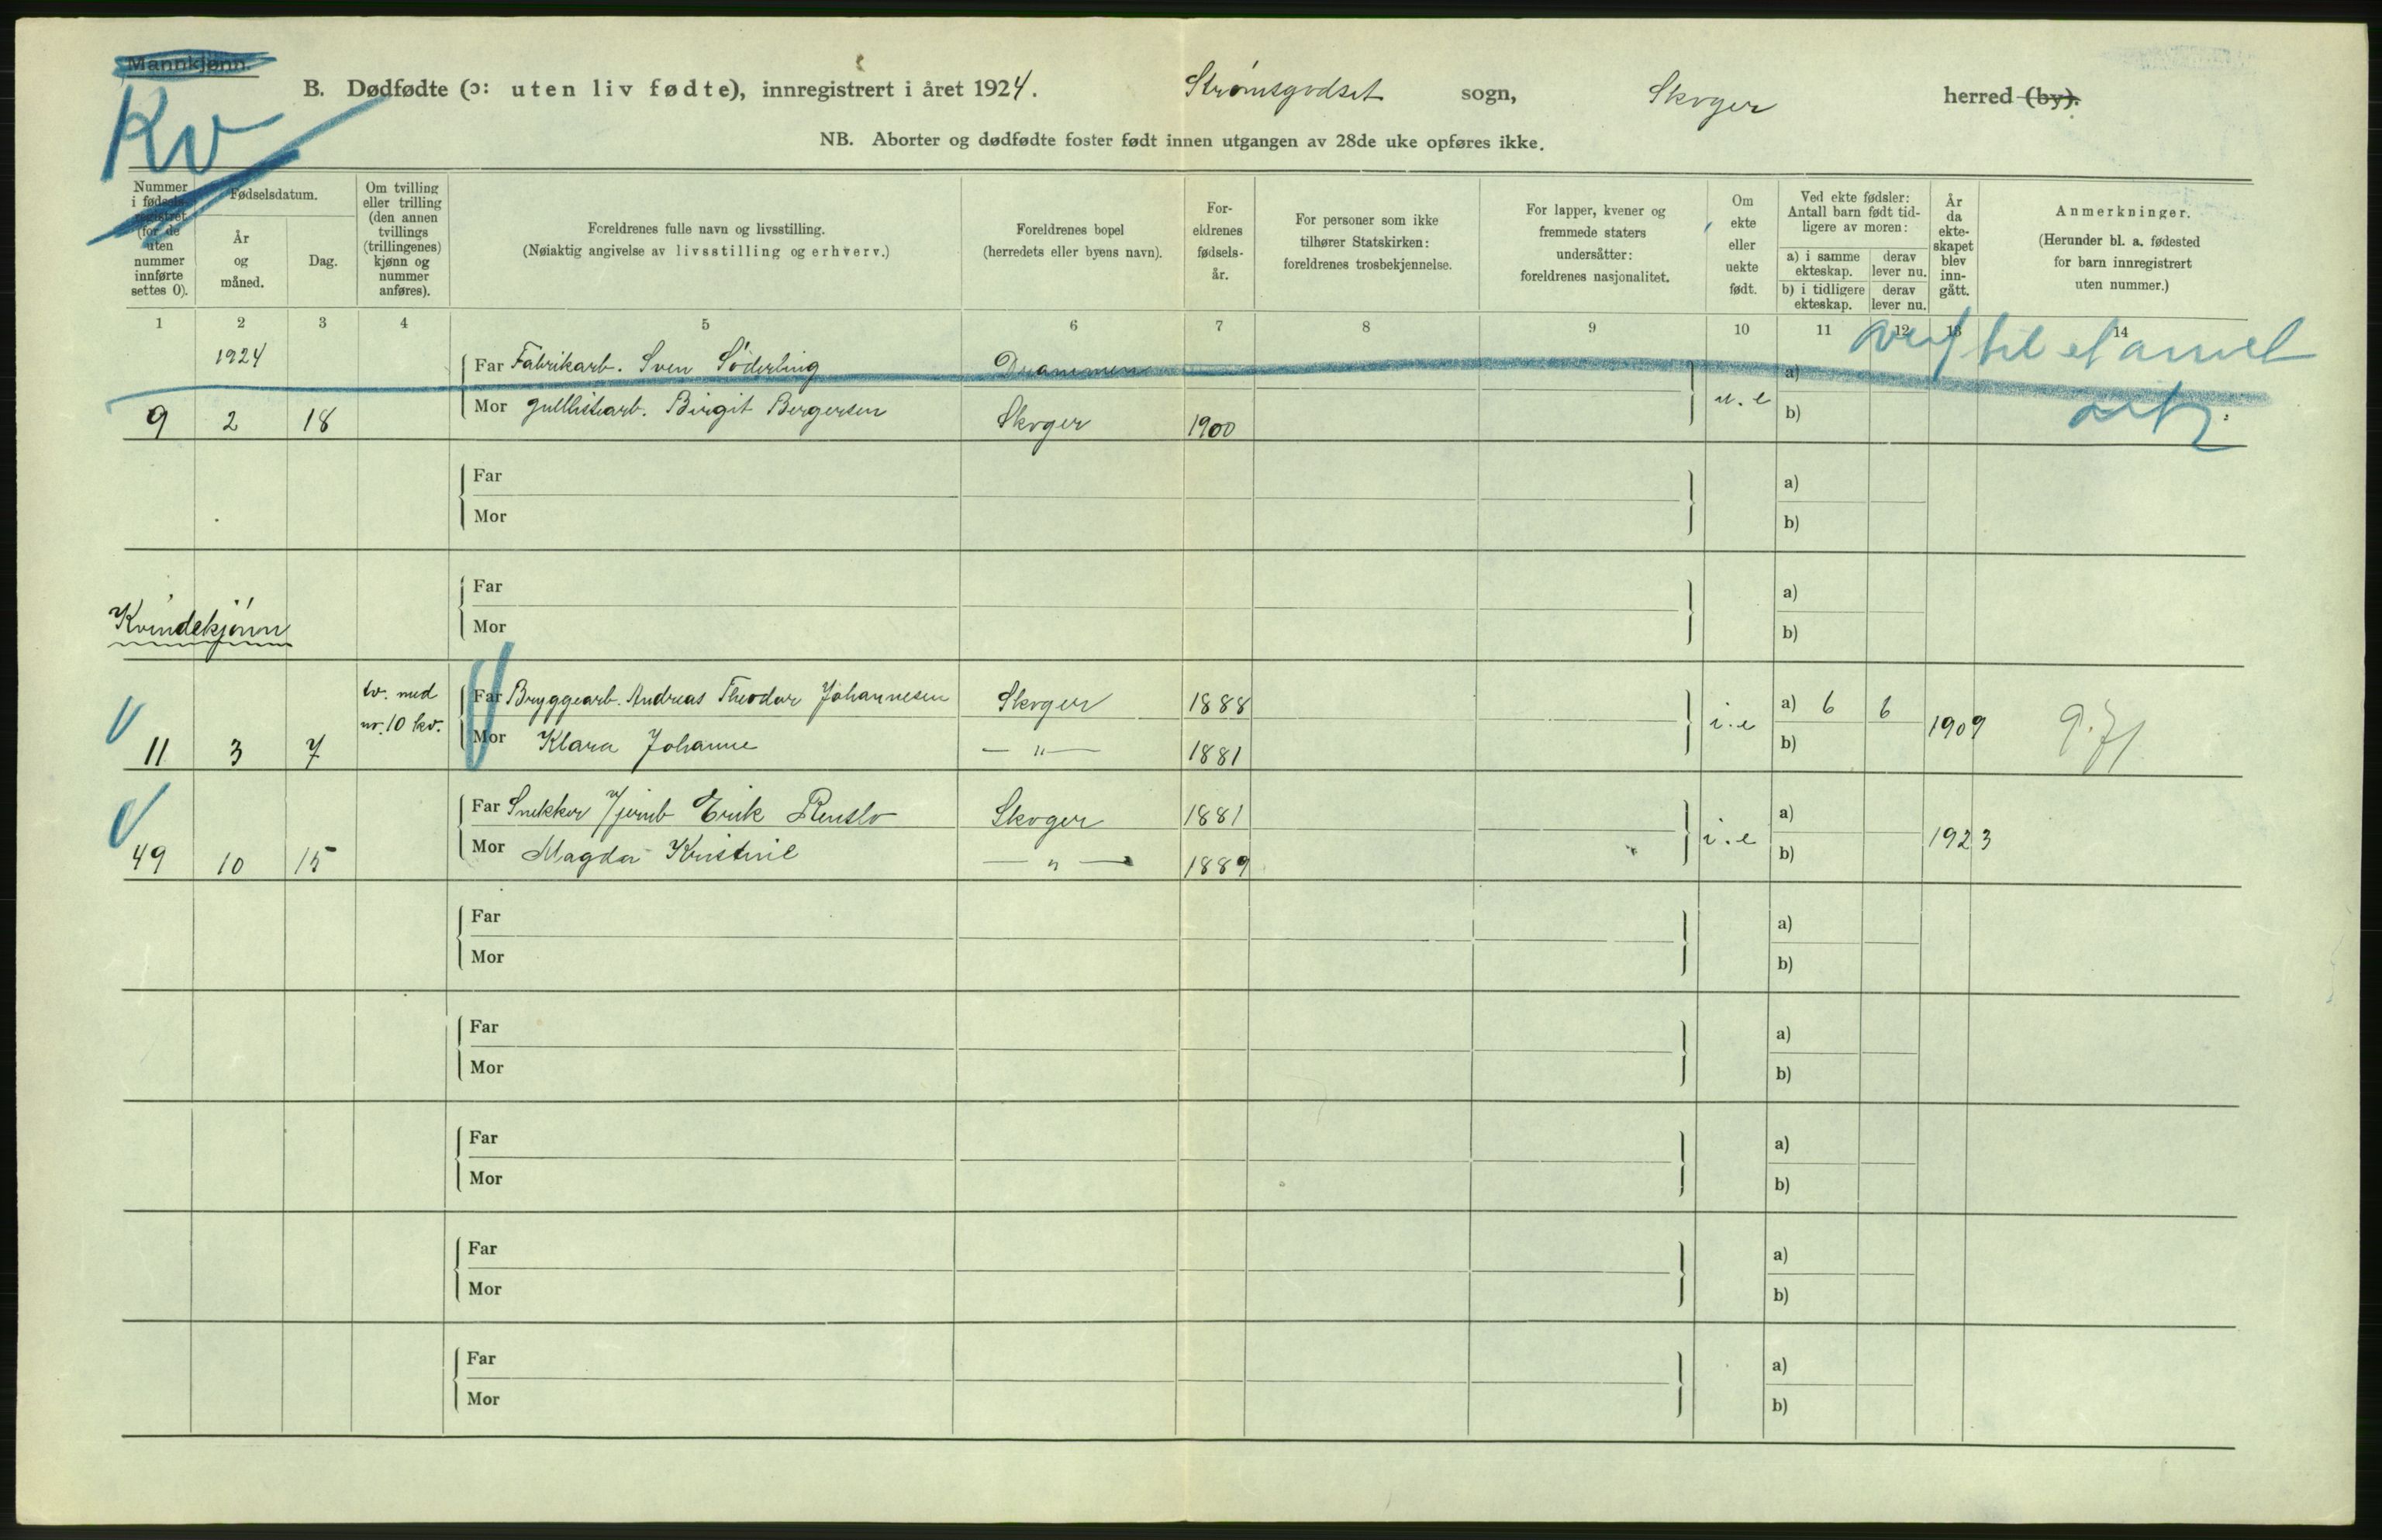 Mannkjønn.
Kv
B. Dødfødte (ɔ: uten liv fødte), innregistrert i året 1924. Strømsgodset sogn, Skoger herred (by).
NB. Aborter og dødfødte foster født innen utgangen av 28de uke opføres ikke.
Nummer i fødselsregistret (for de uten nummer innførte settes 0).
Fødselsdatum.
År og måned.
Dag.
Om tvilling eller trilling (den annen tvillings (trillingenes) kjønn og nummer anføres).
Foreldrenes fulle navn og livsstilling.
(Nøiaktig angivelse av livsstilling og erhverv.)
Foreldrenes bopel
(herredets eller byens navn).
Foreldrenes fødselsår.
For personer som ikke tilhører Statskirken: foreldrenes trosbekjennelse.
For lapper, kvener og fremmede staters undersåtter: foreldrenes nasjonalitet.
Om ekte eller uekte født.
Ved ekte fødsler: Antall barn født tidligere av moren:
a) i samme ekteskap. derav lever nu.
b) i tidligere ekteskap. derav lever nu.
År da ekteskapet blev inngått.
Anmerkninger.
(Herunder bl. a. fødested for barn innregistrert uten nummer.)
1 2 3 4 5 6 7 8 9 10 11 12 13 14
1924 Far Fabrikarb. Sven Söderling Drammen a)
9 2 18 Mor gullistearb. Birgit Bergersen Skoger 1900 u.e b)
til et annet
Far a)
Mor b)
Far a)
Kvindekjønn
Mor b)
tv. med nr. 10 kv. Far Bryggearb. Andreas Theodor Johannesen Skoger 1888 i.e a) 6 6 1909
11 3 7 Mor Klara Johanne — " — 1881 b)
Far Snekker Erik Renslo Skoger 1881 i.e a) 1923
49 10 15 Mor Magda Kristine — " — 1889 b)
Far a)
Mor b)
Far a)
Mor b)
Far a)
Mor b)
Far a)
Mor b)
Far a)
Mor b)